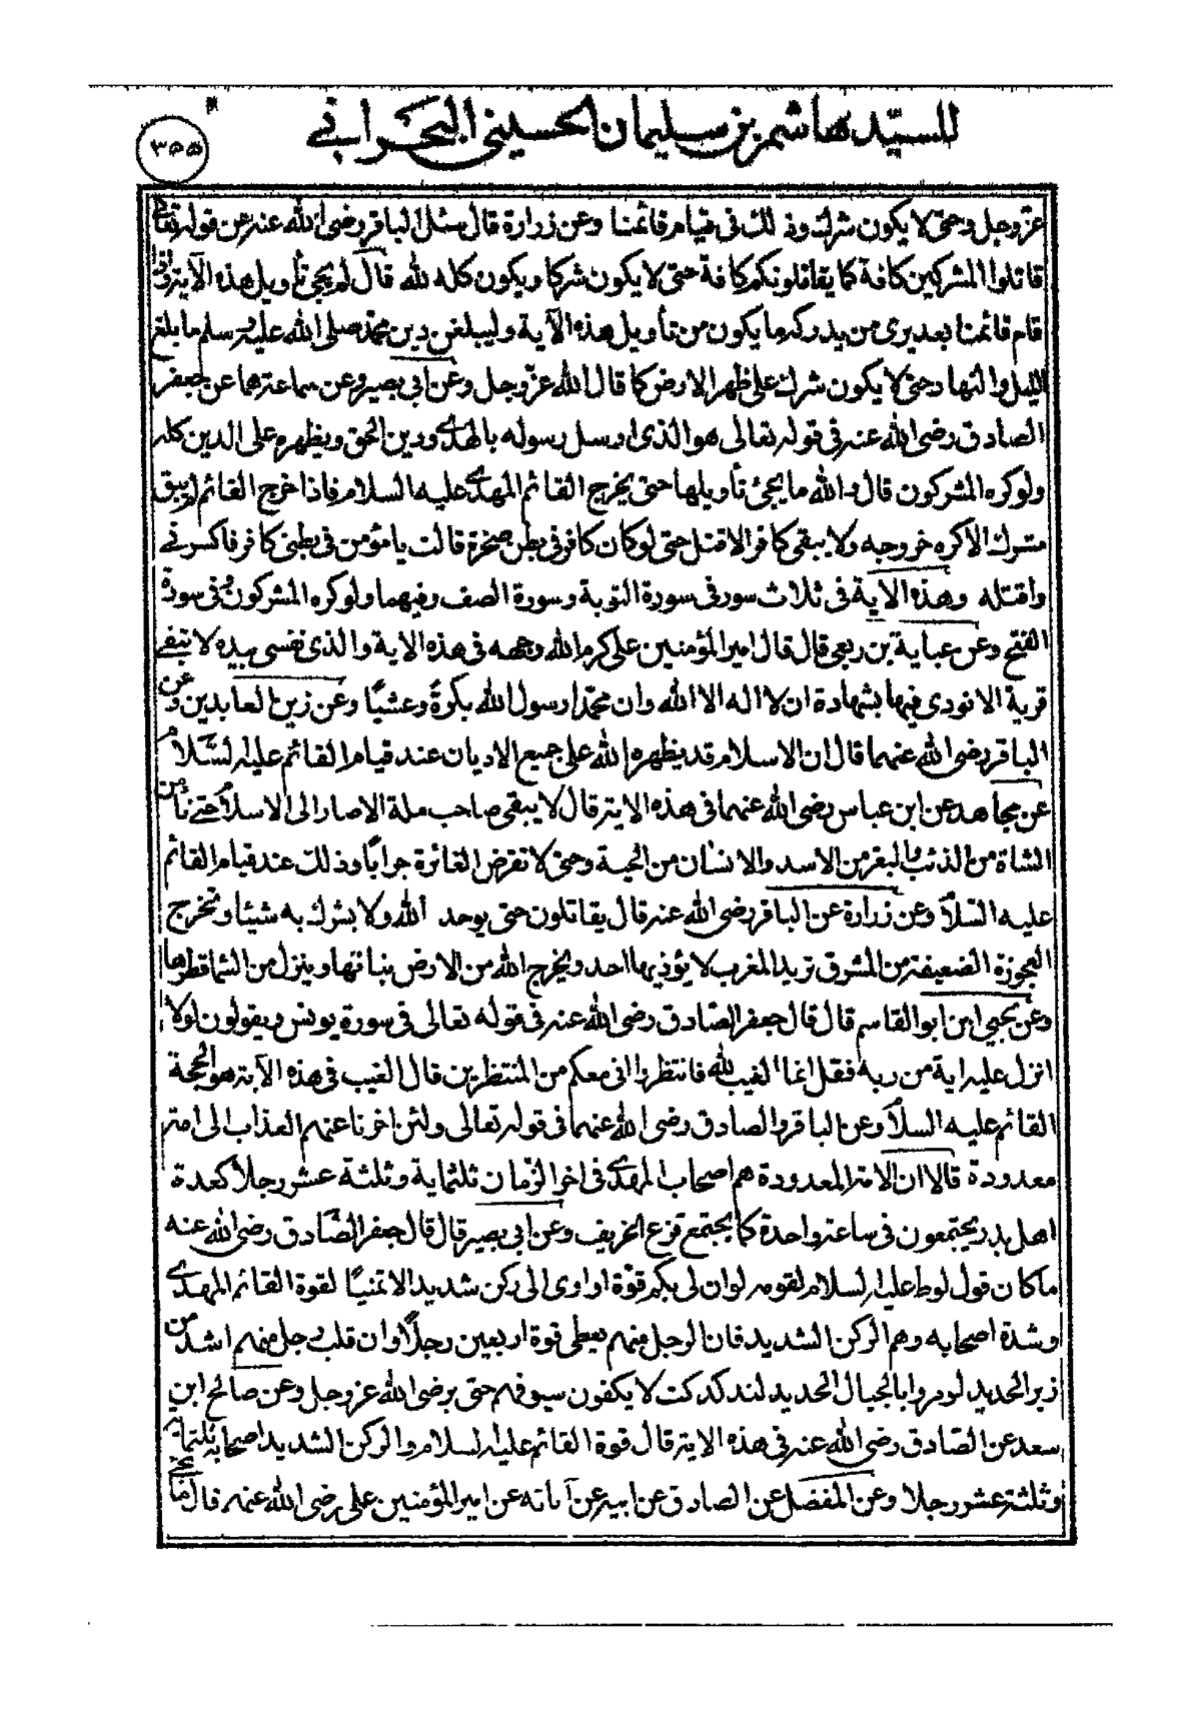 للسيّد هاشم بن سليمان الحسيني البحراني
٣٥٥
عز وجل وحتى لا يكون شرك وذلك فى قيام قائمنا وعن زرارة قال سئل الباقر رضى الله عنه عن قوله تعالى
قاتلوا المشركين كافة كما يقاتلونكم كافة حتى لا يكون شركا ويكون كله لله قال لم يجئ تأويل هذه الآية واذا
قام قائمنا بعد يرى من يدركه ما يكون من تأويل هذه الآية وليبلغن دين محمد صلى الله عليه وسلم ما بلغ
الليل والنهار وحتى لا يكون شرك على ظهر الارض كما قال الله عزّ وجل وعن ابى بصير وعن سماعة هما عن جعفر
الصادق رضى الله عنه فى قوله تعالى هو الذى ارسل رسوله بالهدى ودين الحق ويظهره على الدين كله
ولو كره المشركون قال والله ما يجئ تأويلها حتى يخرج القائم المهدى عليه السلام فاذا خرج القائم لم يبق
مشرك الا كره خروجه ولا يبقى كافر الا قتل حتى لو كان كافر فى بطن صخرة قالت يا مؤمن فى بطنى كافر فاكسرنى
واقتله وهذه الاية فى ثلاث سور فى سورة التوبة وسورة الصف وفيهما ولو كره المشركون وفى سورة
الفتح وعن عباية بن ربعى قال قال امير المؤمنين على كرم الله وجهه فى هذه الاية والذى نفسى بيده لا تبقى
قرية الا نودى فيها بشهادة ان لا اله الا الله وان محمدا رسول الله بكرةً وعشيًا وعن زين العابدين وعن
الباقر رضى الله عنهما قال ان الاسلام قد يظهره الله على جميع الاديان عند قيام القائم عليه السّلام
عن مجاهد عن ابن عباس رضى الله عنهما فى هذه الاية قال لا يبقى صاحب ملة الا صار الى الاسلام حتى تأمن
الشاة من الذئب والبقر من الاسد والانسان من الحية وحتى لا تقرض الفائرة جرابًا وذلك عند قيام القائم
عليه السّلام وعن زرارة عن الباقر رضى الله عنه قال يقاتلون حتى يوحد الله ولا يشرك به شيئا وتخرج
العجوزة الضعيفة من المشرق تريد المغرب لا يؤذيها احد ويخرج الله من الارض نباتها وينزل من السّماء قطرها
وعن يحيى ابن ابو القاسم قال قال جعفر الصّادق رضى الله عنه فى قوله تعالى فى سورة يونس ويقولون لولا
انزل عليه اية من ربه فقل انما الغيب لله فانتظروا انى معكم من المنتظرين قال الغيب فى هذه الآية هو الحجة
القائم عليه السلام وعن الباقر والصادق رضى الله عنهما فى قوله تعالى ولئن اخرنا عنهم العذاب الى امة
معدودة قالا ان الامة المعدودة هم اصحاب المهدى فى اخر الزمان ثلثماية وثلثة عشر رجلا كعدة
اهل بدر يجتمعون فى ساعة واحدة كما يجتمع قزع الخريف وعن ابى بصير قال قال جعفر الصّادق رضى الله عنه
ما كان قول لوط عليه السلام لقومه لو ان لى بكم قوّة او اوى الى ركن شديد الا تمنيًا لقوة القائم المهدى
وشدة اصحابه وهم الركن الشديد فان الرجل منهم يعطى قوة اربعين رجلًا وان قلب رجل منهم اشد من
زبر الحديد لو مروا بالجبال الحديد لتدكدكت لا يكفون سيوفهم حتى يرضى الله عز وجل وعن صالح ابن
سعد عن الصّادق رضى الله عنه فى هذه الاية قال قوة القائم عليه السلام والركن الشديد اصحابه ثلثمائة
وثلثة عشر رجلا وعن المفضل عن الصادق عن ابيه عن آبائه عن امير المؤمنين على رضى الله عنه قال